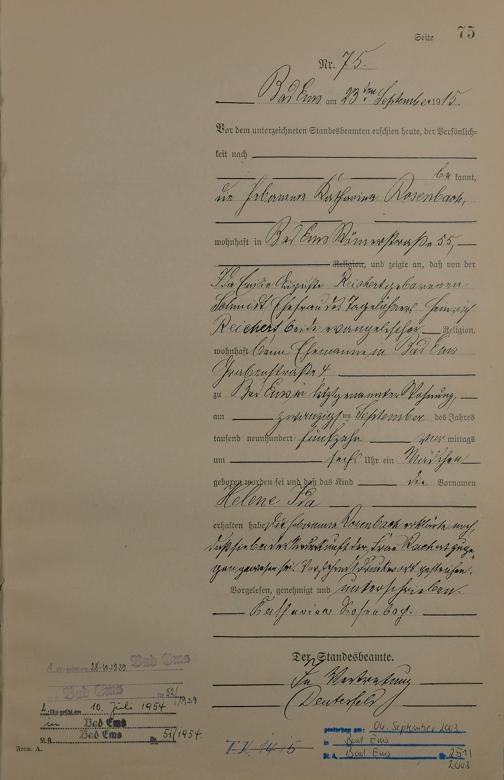 Seite 75
Nr. 75.
Bad Ems am 23ten September 1915.
Vor dem unterzeichneten Standesbeamten erschien heute, der Persönlich-
keit nach
be kannt,
die Hebamme Katharina Rosenbach,
wohnhaft in Bad Ems Römerstraße 55,
Religion, und zeigte an, daß von der
Ida Emilie Auguste Reichert geborenen
Schmidt Ehefrau des Tagelöhners Heinrich
Reichert beide evangelischer Religion,
wohnhaft beim Ehemanne in Bad Ems
Grabenstraße 4
zu Bad Ems in letztgenannter Wohnung,
am zwanzigsten September des Jahres
tausend neunhundert fünfzehn vormittags
um sechs Uhr ein Mädchen
geboren worden sei und daß das Kind die Vornamen
Helene Ida
erhalten habe. Die Hebamme Rosenbach erklärte noch,
daß sie bei der Niederkunft der Frau Reichert zuge-
gen gewesen sei.
Vorgelesen, genehmigt und unterschrieben.
Katharina Rosenbach.
Der Standesbeamte.
In Vertretung
28.10.1939 Bad Ems
Bad Ems
10. Juli 1954
in Bad Ems
St.A. Bad Ems Nr. 51/1954
Form. A.
gestorben am: 04. September 2003
in Bad Ems
St.A. Bad Ems Nr.
2003